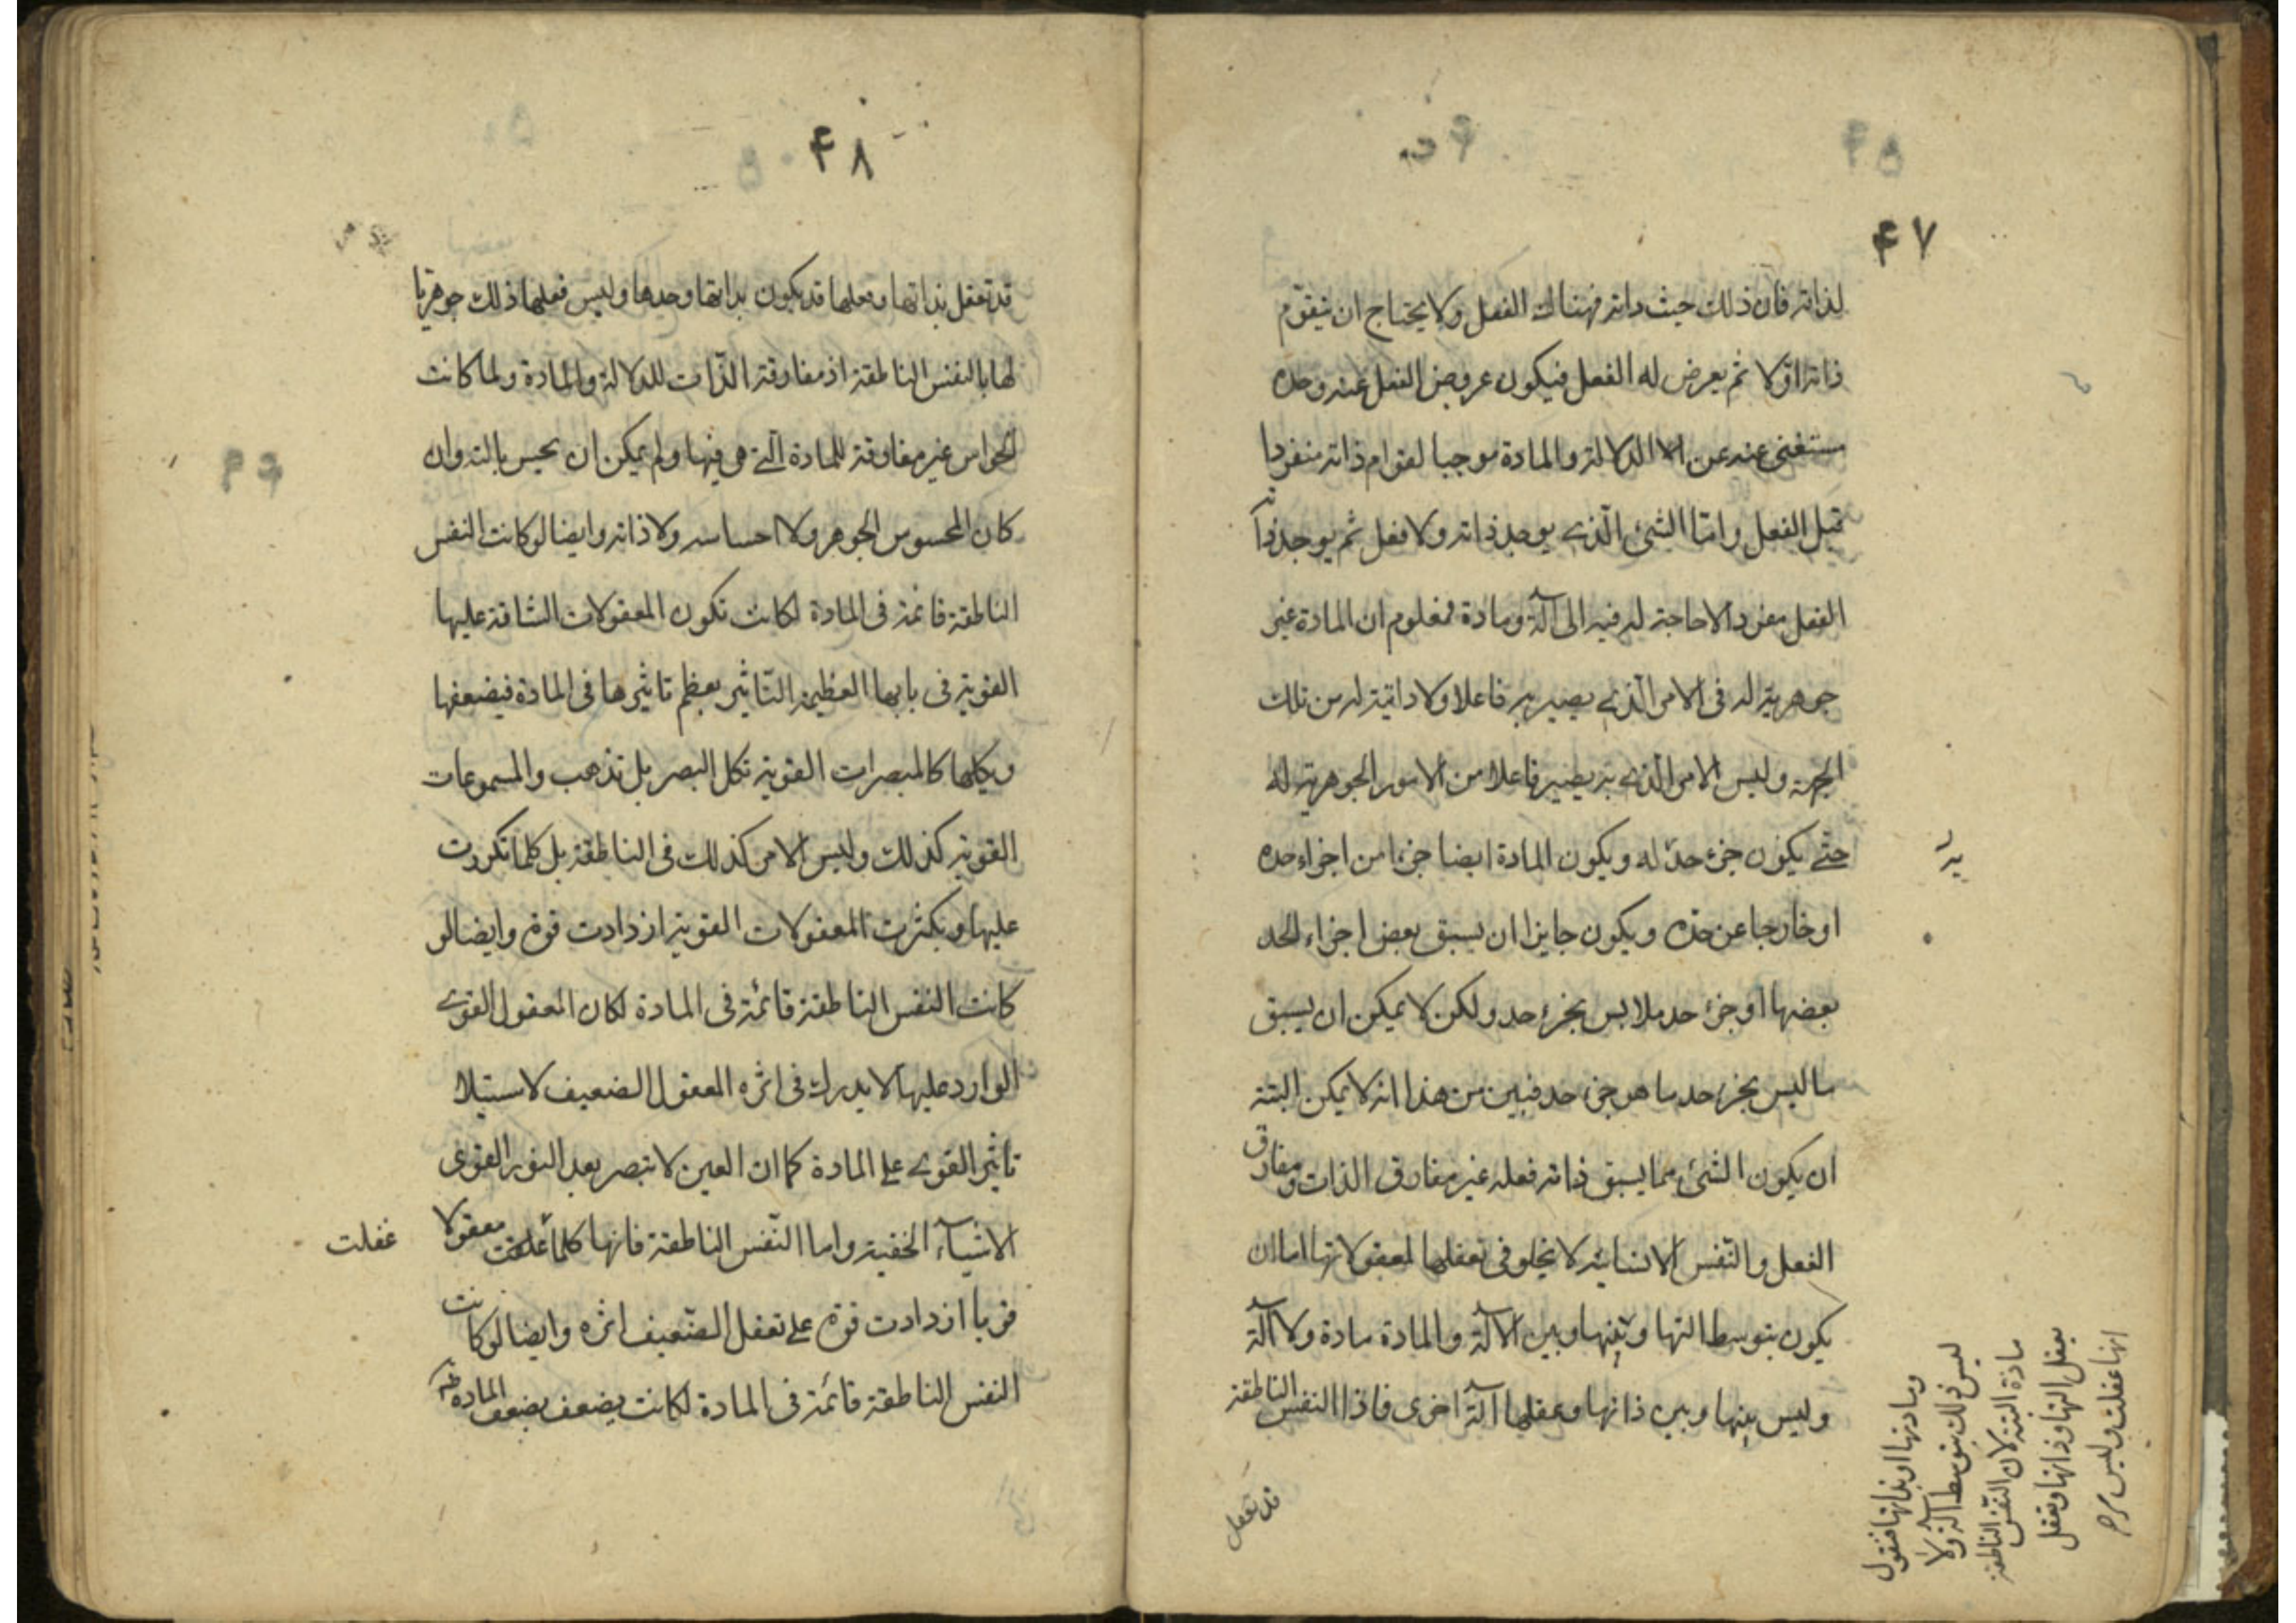 ٤٧
لذاته فان ذلك حيث ذاته فهناك الفعل ولا يحتاج ان يتقوم
ذاته اولا ثم يعرض له الفعل فيكون عروض الفعل عنه وحده
مستغنى عنه عن الالة والمادة موجبا لقوام ذاته منفردا
قبل الفعل واما الشئ الذى يوجد ذاته ولا فعل ثم يوجد ذاته
الفعل مفردا لا حاجة له فيه الى آلة ومادة فمعلوم ان المادة غير
جوهرية له فى الامر الذى يصير به فاعلا ولا ذاتية له من تلك
الجهة وليس الامر الذى به يصير فاعلا من الامور الجوهرية له
حتى يكون جزء حد له ويكون المادة ايضا جزءا من اجزاء حده
او خارجا عن حده ويكون جايزا ان يسبق بعض اجزاء الحد
بعضها او جزء حد ملابس بجزء حد ولكن لا يمكن ان يسبق
ما ليس بجزء حد ما هو جزء حد فبين من هذا انه لا يمكن البتة
ان يكون الشئ مما يسبق ذاته فعله غير مفارق الذات ومفارق
الفعل والنفس الانسانية لا يخلو فى تعقلها لمعقولاتها اما ان
يكون بتوسط التها وبينها وبين الآلة والمادة مادة ولا آلة
وليس بينها وبين ذاتها وعقلها آلة اخرى فاذا النفس الناطقة
قد تعقل
ومادتها او بذاتها فنقول
ليس ذلك بتوسط آلة ولا
مادة البتة لان النفس الناطقة
يعقل التها وذاتها وتعقل
انها عقلت وليس
٤٨
قد تعقل بذاتها وفعلها قد يكون بذاتها وحدها وليس فعلها ذلك جوهريا
لها بالنفس الناطقة اذ مفارقة الذات للالة والمادة ولما كانت
الحواس غير مفارقة للمادة التى هى فيها ولم يمكن ان يحس بالته وان
كان المحسوس الجوهر ولا احساسه ولا ذاته وايضا لو كانت النفس
الناطقة قائمة فى المادة لكانت تكون المعقولات الشاقة عليها
القوية فى بابها العظيمة التاثير يعظم تاثيرها فى المادة فيضعفها
ويكلها كالمبصرات القوية تكل البصر بل تذهب والمسموعات
القوية كذلك وليس الامر كذلك فى الناطقة بل كلما تكررت
عليها وتكثرت المعقولات القوية ازدادت قوة وايضا لو
كانت النفس الناطقة قائمة فى المادة لكان المعقول القوى
الوارد عليها لا يدرك فى اثره المعقول الضعيف لاستيلا
تاثير القوى على المادة كما ان العين لا تبصر بعد النور القوى
الاشياء الخفية واما النفس الناطقة فانها كلما عقلت معقولا
عقلت
قويا ازدادت قوة على تعقل الضعيف اثره وايضا لو كانت
النفس الناطقة قائمة فى المادة لكانت يضعف بضعف المادة